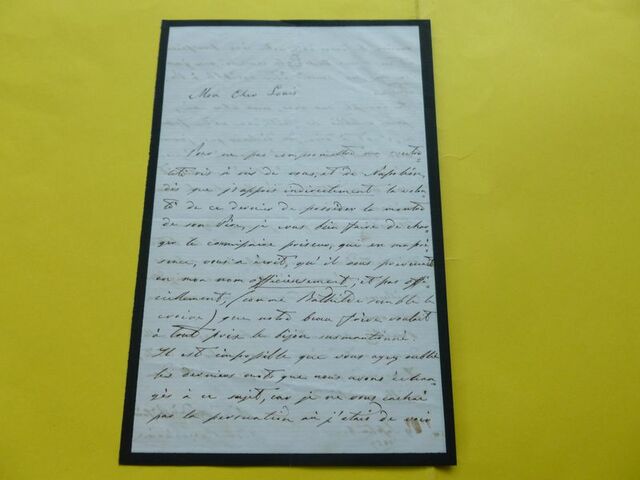 Mon Cher Louis
Pour ne pas compromettre ma neutra-
lité vis à vis de vous, et de Napoléon,
dès que j'appris indirectement la volon-
té de ce dernier de posséder la montre
de son Père, je crus bien faire de char-
ger le commissaire priseur, qui en ma pré-
sence, vous a écrit, qu'il vous prévenait
en mon nom officieusement, et pas offi-
ciellement, (comme Bathilde semble le
croire) que notre beau frère voulait
à tout prix le bijou susmentionné.
Il est impossible que vous ayez oublié
les derniers mots que nous avons échan-
gés à ce sujet, car je ne vous cachai
pas la persuation où j'étais de voir